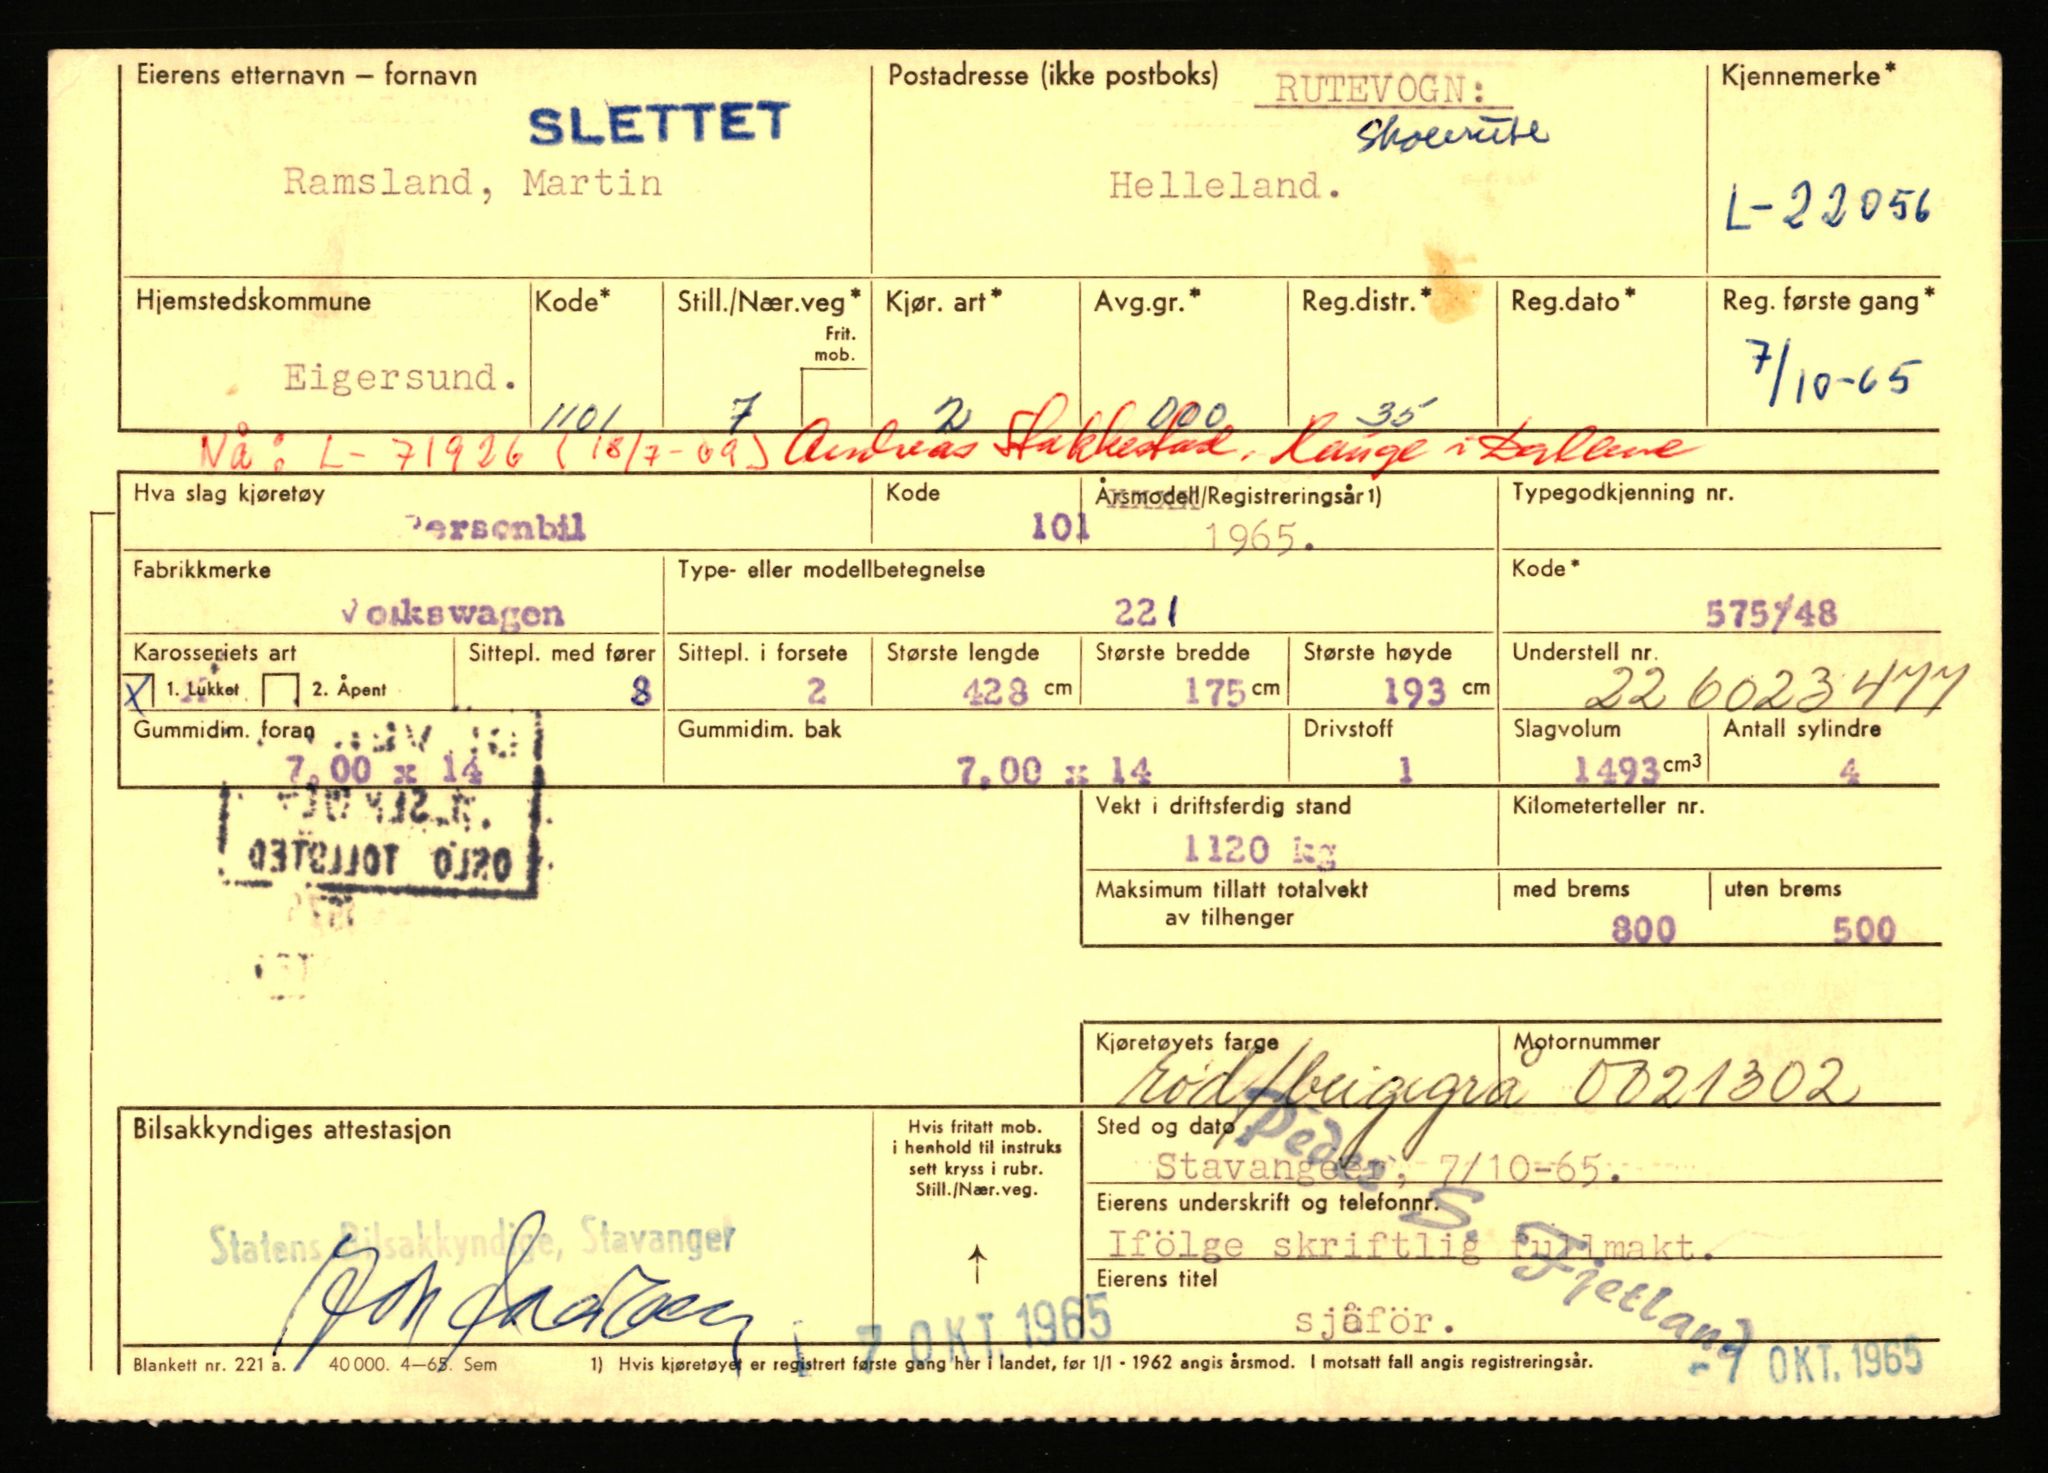 Eierens etternavn – fornavn
Postadresse (ikke postboks)
RUTEVOGN:
Kjennemerke*
SLETTET
Skolerute
Ramsland, Martin
Helleland.
L-22056
Hjemstedskommune
Kode*
Still./Nær.veg*
Frit. mob.
Kjør. art*
Avg.gr.*
Reg.distr.*
Reg.dato*
Reg. første gang*
Eigersund.
1101
7
2
000
35
7/10-65
Nå: L-71926 (18/7-69) Andreas Stakkestad, Hauge i Dalene
Hva slag kjøretøy
Kode
Årsmodell/Registreringsår 1)
Typegodkjenning nr.
Personbil
101
1965.
Fabrikkmerke
Type- eller modellbetegnelse
Kode*
Volkswagen
221
575/48
Karosseriets art
Sittepl. med fører
Sittepl. i forsete
Største lengde
Største bredde
Største høyde
Understell nr.
X 1. Lukket
2. Åpent
8
2
428 cm
175 cm
193 cm
226023477
Gummidim. foran
Gummidim. bak
Drivstoff
Slagvolum
Antall sylindre
7.00 x 14
7.00 x 14
1
1493 cm3
4
OSLO TOLLSTED
Vekt i driftsferdig stand
Kilometerteller nr.
1120 kg
Maksimum tillatt totalvekt
av tilhenger
med brems
uten brems
800
500
Kjøretøyets farge
Motornummer
rød/beigegrå
0021302
Bilsakkyndiges attestasjon
Hvis fritatt mob.
i henhold til instruks
sett kryss i rubr.
Still./Nær.veg.
Sted og dato
Stavanger, 7/10-65.
Eierens underskrift og telefonnr.
Peder S. Fjetland
Statens Bilsakkyndige, Stavanger
Ifölge skriftlig fullmakt.
Eierens titel
sjåför.
7 OKT. 1965
-7 OKT. 1965
Blankett nr. 221 a. 40 000. 4–65. Sem
1) Hvis kjøretøyet er registrert første gang her i landet, før 1/1 - 1962 angis årsmod. I motsatt fall angis registreringsår.